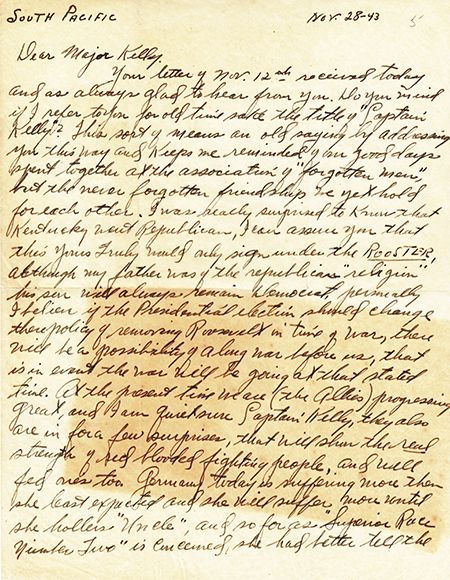 SOUTH PACIFIC
NOV. 28-43
5
Dear Major Kelly.
Your letter of Nov. 12th received today
and as always glad to hear from you. Do you mind
if I refer to you for old time sake the title of "Captain
Kelly"? This sort of means an old saying by addressing
you this way and keeps me reminded of our good days
spent together at the association of "forgotten men",
but the never forgotten friendship we yet hold
for each other. I was really surprised to know that
Kentucky went Republican, I can assure you that
this Yours Truly would only sign under the ROOSTER,
although my father was of the republican "religion"
his son will always remain Democrat, personally
I believe if the Presidential election should change
there policy of removing Roosevelt in time of war, there
will be a possibility of a long war before us, that
is in event the war will be going at that stated
time. At the present time we are (the Allies) progressing
great, and I am quite sure Captain Kelly, they also
are in for a few surprises, that will show the real
strength of red blooded fighting people, and well
fed ones too. Germany today is suffering more than
she least expected and she will suffer more until
she hollers "Uncle", and so far as "Superior Race
Number Two" is concerned, she had better tell the